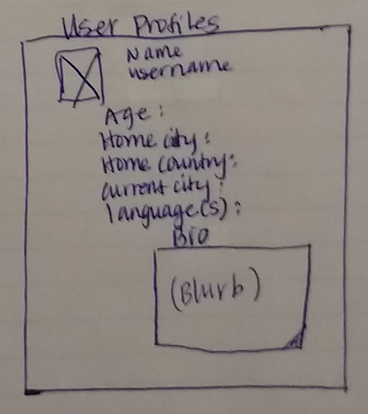 User Profiles
Name
username
Age:
Home city:
Home country:
current city:
language(s):
Bio
(Blurb)